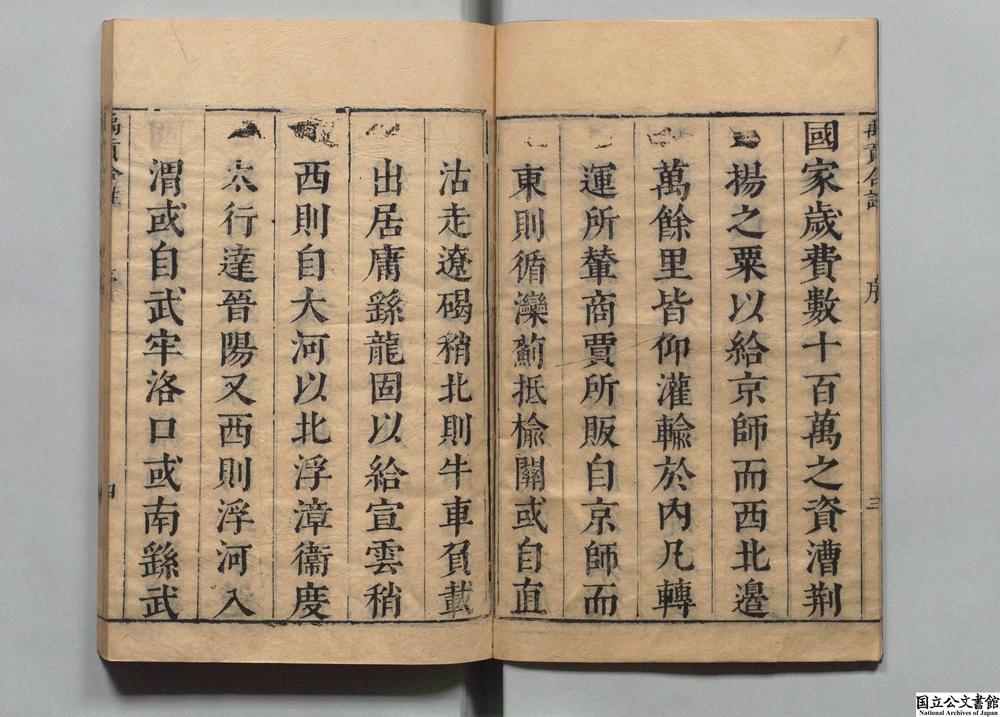 國家歲費數十百萬之資漕荆
揚之粟以給京師而西北邉
萬餘里皆仰灌輸於內凡轉
運所輦商賈所販自京師而
東則循灤薊抵榆關或自直
沽走遼碣稍北則牛車負載
出居庸繇龍固以給宣雲稍
西則自大河以北浮漳衞度
太行達晉陽又西則浮河入
渭或自武牢洛口或南繇武
禹貢合註
序
三
四
国立公文書館
National Archives of Japan